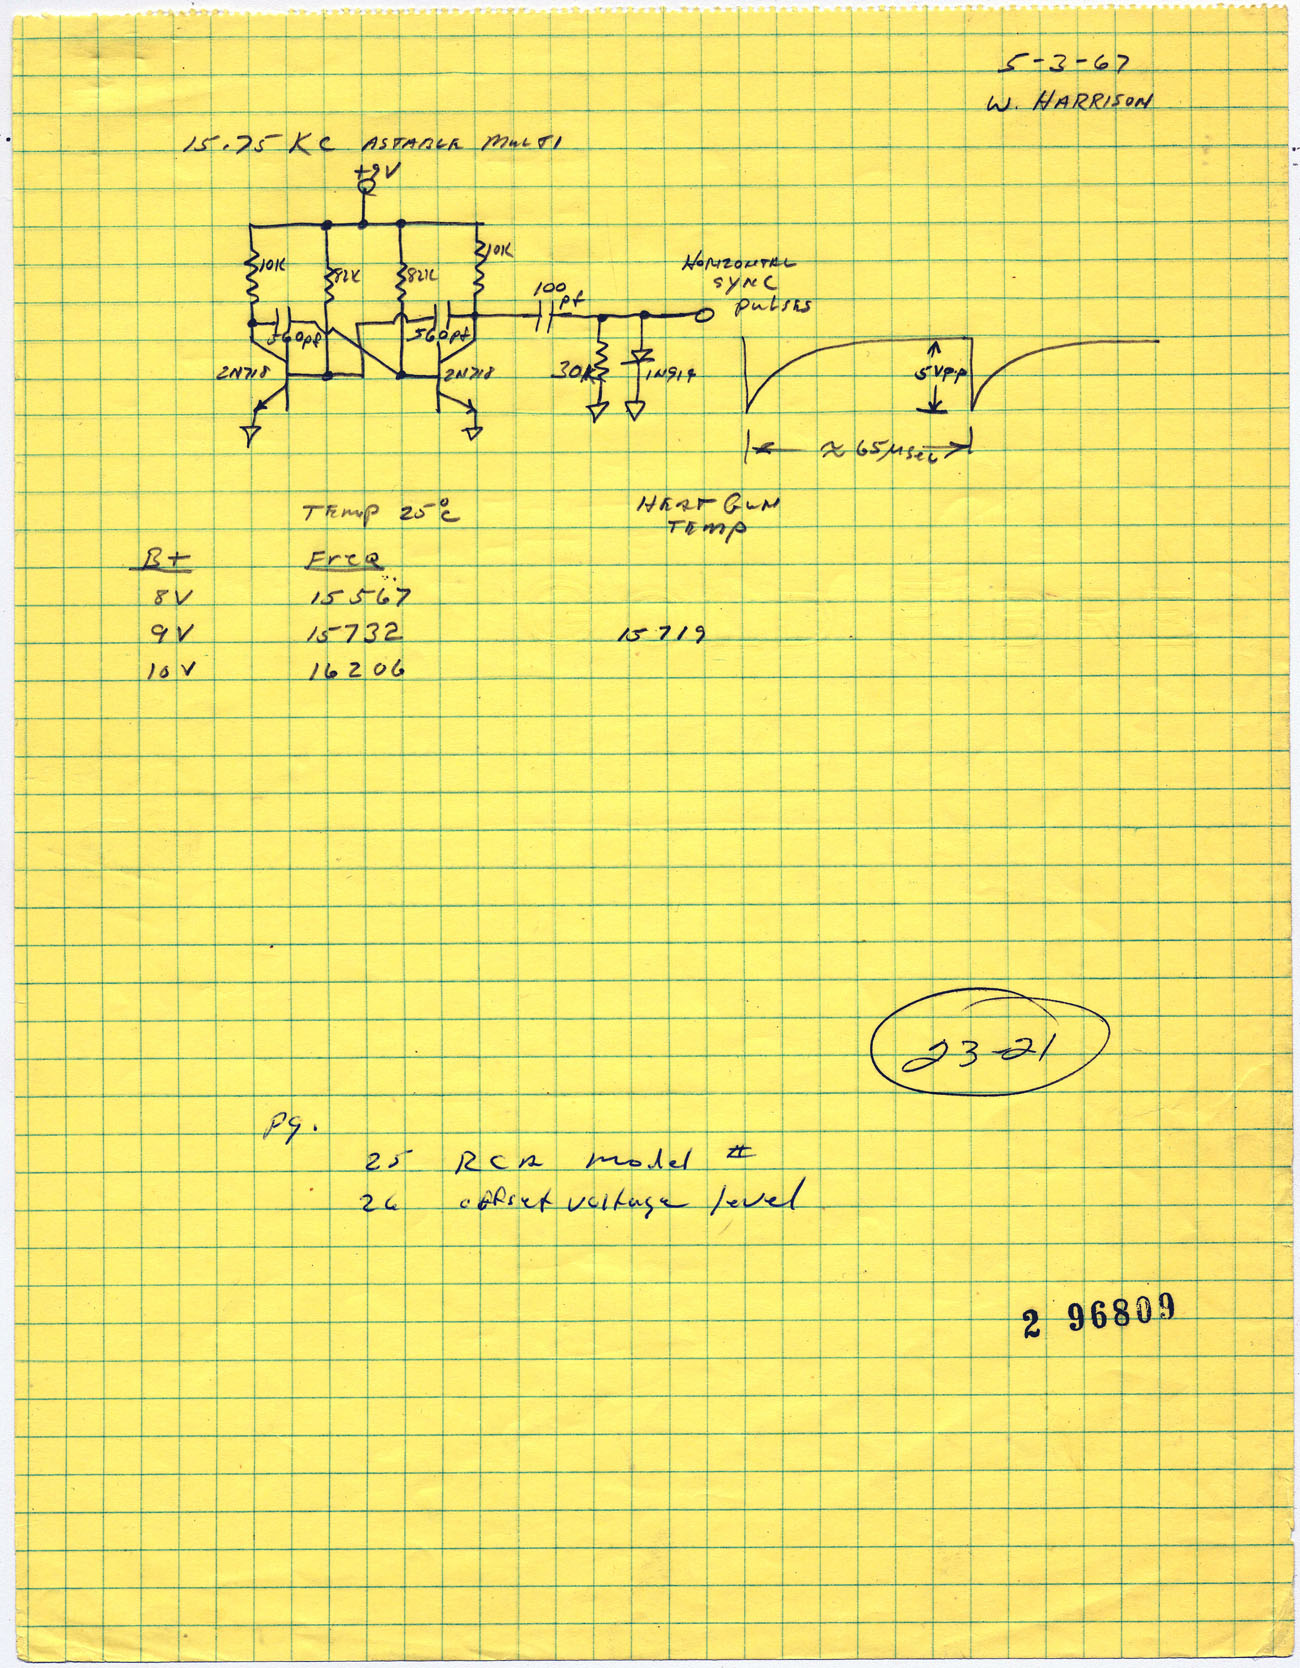 5-3-67
W. HARRISON
15.75 KC ASTABLE MULTI
+9V
10K
82K
82K
10K
560pf
560pf
2N718
2N718
100
pf
30K
1N914
HORIZONTAL
SYNC
pulses
5Vp.p
≈ 65µsec
TEMP 25°C
HEAT GUN
TEMP
B+ Freq
8V 15567
9V 15732 15719
10V 16206
23-21
pg.
25 RCA model #
26 offset voltage level
2 96809